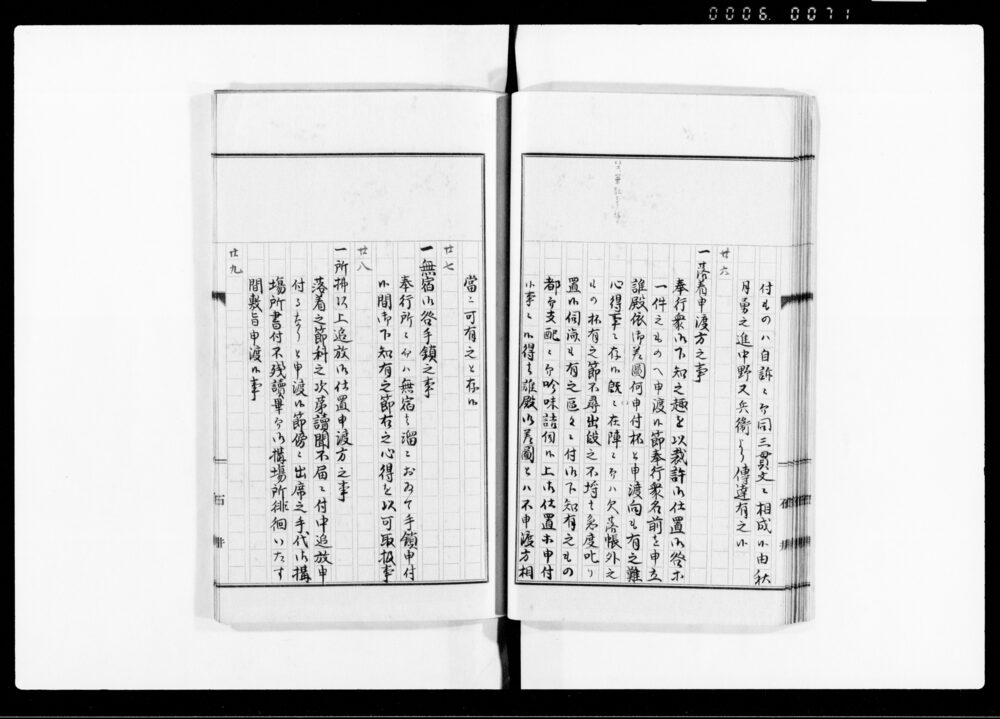 0006. 0071
付ものハ自訴ニ而同三貫文ニ相成候由秋
月勇之進中野又兵衛より傳達有之候
廿六
一落着申渡方之事
奉行衆御下知之趣を以裁許御仕置御咎等
一件之ものへ申渡候節奉行衆名前を申立
誰殿依御差圖何申付抔と申渡向も有之難
心得事ニ存候既ニ在陣ニ而ハ欠落帳外之
もの抔有之節不尋出段之不埒も急度叱り
置候伺済も有之區々ニ付御下知有之もの
都而支配ニ而吟味詰伺候上御仕置等申付
候事ニ候得は誰殿御差圖とハ不申渡方相
當ニ可有之と存候
廿七
一無宿御咎手鎖之事
奉行所ニ而ハ無宿は溜ニおゐて手鎖申付
候間御下知有之節右之心得を以可取扱事
廿八
一所拂以上追放御仕置申渡方之事
落着之節科之次第讀聞不届ニ付中追放申
付るなりと申渡候節傍ニ出席之手代御搆
場所書付不残讀畢而御搆場所徘徊いたす
間敷旨申渡候事
廿九